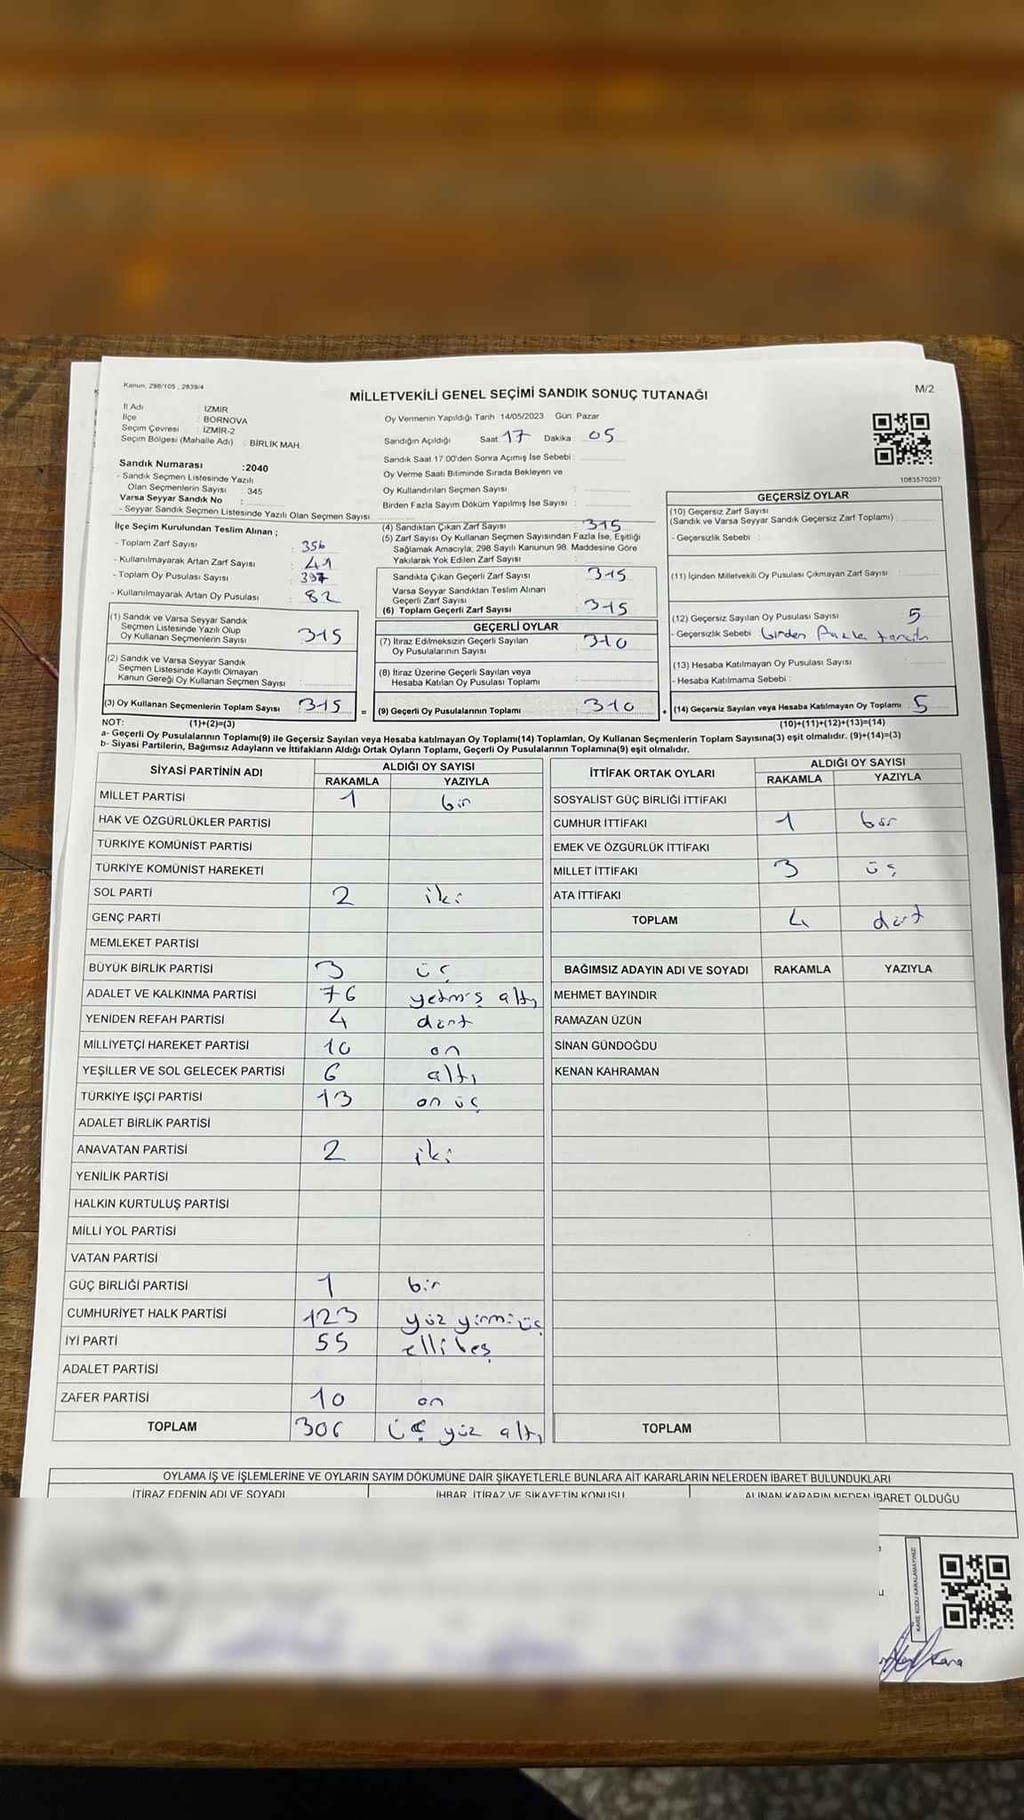 Kanun, 298/105 , 2839/4
MİLLETVEKİLİ GENEL SEÇİMİ SANDIK SONUÇ TUTANAĞI
M/2
İl Adı : İZMİR
İlçe : BORNOVA
Seçim Çevresi : İZMİR-2
Seçim Bölgesi (Mahalle Adı) : BİRLİK MAH.
Oy Vermenin Yapıldığı Tarih 14/05/2023 Gün: Pazar
Sandığın Açıldığı Saat 17 Dakika : 05
Sandık Saat 17:00'den Sonra Açımış İse Sebebi :
Oy Verme Saati Bitiminde Sırada Bekleyen ve
Oy Kullandırılan Seçmen Sayısı :
Birden Fazla Sayım Döküm Yapılmış İse Sayısı :
1083570207
Sandık Numarası : 2040
- Sandık Seçmen Listesinde Yazılı
Olan Seçmenlerin Sayısı : 345
Varsa Seyyar Sandık No :
- Seyyar Sandık Seçmen Listesinde Yazılı Olan Seçmen Sayısı :
İlçe Seçim Kurulundan Teslim Alınan ;
- Toplam Zarf Sayısı : 356
- Kullanılmayarak Artan Zarf Sayısı : 41
- Toplam Oy Pusulası Sayısı : 397
- Kullanılmayarak Artan Oy Pusulası : 82
(1) Sandık ve Varsa Seyyar Sandık
Seçmen Listesinde Yazılı Olup
Oy Kullanan Seçmenlerin Sayısı : 315
(2) Sandık ve Varsa Seyyar Sandık
Seçmen Listesinde Kayıtlı Olmayan
Kanun Gereği Oy Kullanan Seçmen Sayısı :
(3) Oy Kullanan Seçmenlerin Toplam Sayısı : 315
(4) Sandıktan Çıkan Zarf Sayısı : 315
(5) Zarf Sayısı Oy Kullanan Seçmen Sayısından Fazla İse, Eşitliği
Sağlamak Amacıyla; 298 Sayılı Kanunun 98. Maddesine Göre
Yakılarak Yok Edilen Zarf Sayısı :
Sandıkta Çıkan Geçerli Zarf Sayısı : 315
Varsa Seyyar Sandıktan Teslim Alınan
Geçerli Zarf Sayısı :
(6) Toplam Geçerli Zarf Sayısı : 315
GEÇERLİ OYLAR
(7) İtiraz Edilmeksizin Geçerli Sayılan
Oy Pusulalarının Sayısı : 310
(8) İtiraz Üzerine Geçerli Sayılan veya
Hesaba Katılan Oy Pusulası Toplamı :
= (9) Geçerli Oy Pusulalarının Toplamı : 310
GEÇERSİZ OYLAR
(10) Geçersiz Zarf Sayısı
(Sandık ve Varsa Seyyar Sandık Geçersiz Zarf Toplamı) :
- Geçersizlik Sebebi :
(11) İçinden Milletvekili Oy Pusulası Çıkmayan Zarf Sayısı :
(12) Geçersiz Sayılan Oy Pusulası Sayısı : 5
- Geçersizlik Sebebi : birden fazla tercih
(13) Hesaba Katılmayan Oy Pusulası Sayısı :
- Hesaba Katılmama Sebebi :
+ (14) Geçersiz Sayılan veya Hesaba Katılmayan Oy Toplamı : 5
NOT: (1)+(2)=(3)
(10)+(11)+(12)+(13)=(14)
a- Geçerli Oy Pusulalarının Toplamı(9) ile Geçersiz Sayılan veya Hesaba katılmayan Oy Toplamı(14) Toplamları, Oy Kullanan Seçmenlerin Toplam Sayısına(3) eşit olmalıdır. (9)+(14)=(3)
b- Siyasi Partilerin, Bağımsız Adayların ve İttifakların Aldığı Ortak Oyların Toplamı, Geçerli Oy Pusulalarının Toplamına(9) eşit olmalıdır.
SİYASİ PARTİNİN ADI ALDIĞI OY SAYISI
RAKAMLA YAZIYLA
MİLLET PARTİSİ 1 bir
HAK VE ÖZGÜRLÜKLER PARTİSİ
TÜRKİYE KOMÜNİST PARTİSİ
TÜRKİYE KOMÜNİST HAREKETİ
SOL PARTİ 2 iki
GENÇ PARTİ
MEMLEKET PARTİSİ
BÜYÜK BİRLİK PARTİSİ 3 üç
ADALET VE KALKINMA PARTİSİ 76 yetmiş altı
YENİDEN REFAH PARTİSİ 4 dört
MİLLİYETÇİ HAREKET PARTİSİ 10 on
YEŞİLLER VE SOL GELECEK PARTİSİ 6 altı
TÜRKİYE İŞÇİ PARTİSİ 13 on üç
ADALET BİRLİK PARTİSİ
ANAVATAN PARTİSİ 2 iki
YENİLİK PARTİSİ
HALKIN KURTULUŞ PARTİSİ
MİLLİ YOL PARTİSİ
VATAN PARTİSİ
GÜÇ BİRLİĞİ PARTİSİ 1 bir
CUMHURİYET HALK PARTİSİ 123 yüz yirmi üç
İYİ PARTİ 55 elli beş
ADALET PARTİSİ
ZAFER PARTİSİ 10 on
TOPLAM 306 üç yüz altı
İTTİFAK ORTAK OYLARI ALDIĞI OY SAYISI
RAKAMLA YAZIYLA
SOSYALİST GÜÇ BİRLİĞİ İTTİFAKI
CUMHUR İTTİFAKI 1 bir
EMEK VE ÖZGÜRLÜK İTTİFAKI
MİLLET İTTİFAKI 3 üç
ATA İTTİFAKI
TOPLAM 4 dört
BAĞIMSIZ ADAYIN ADI VE SOYADI RAKAMLA YAZIYLA
MEHMET BAYINDIR
RAMAZAN ÜZÜN
SİNAN GÜNDOĞDU
KENAN KAHRAMAN
TOPLAM
OYLAMA İŞ VE İŞLEMLERİNE VE OYLARIN SAYIM DÖKÜMÜNE DAİR ŞİKAYETLERLE BUNLARA AİT KARARLARIN NELERDEN İBARET BULUNDUKLARI
İTİRAZ EDENİN ADI VE SOYADI İHBAR, İTİRAZ VE ŞİKAYETİN KONUSU ALINAN KARARIN NEDEN İBARET OLDUĞU
KARE KODU KARALAMAYINIZ!
Kara